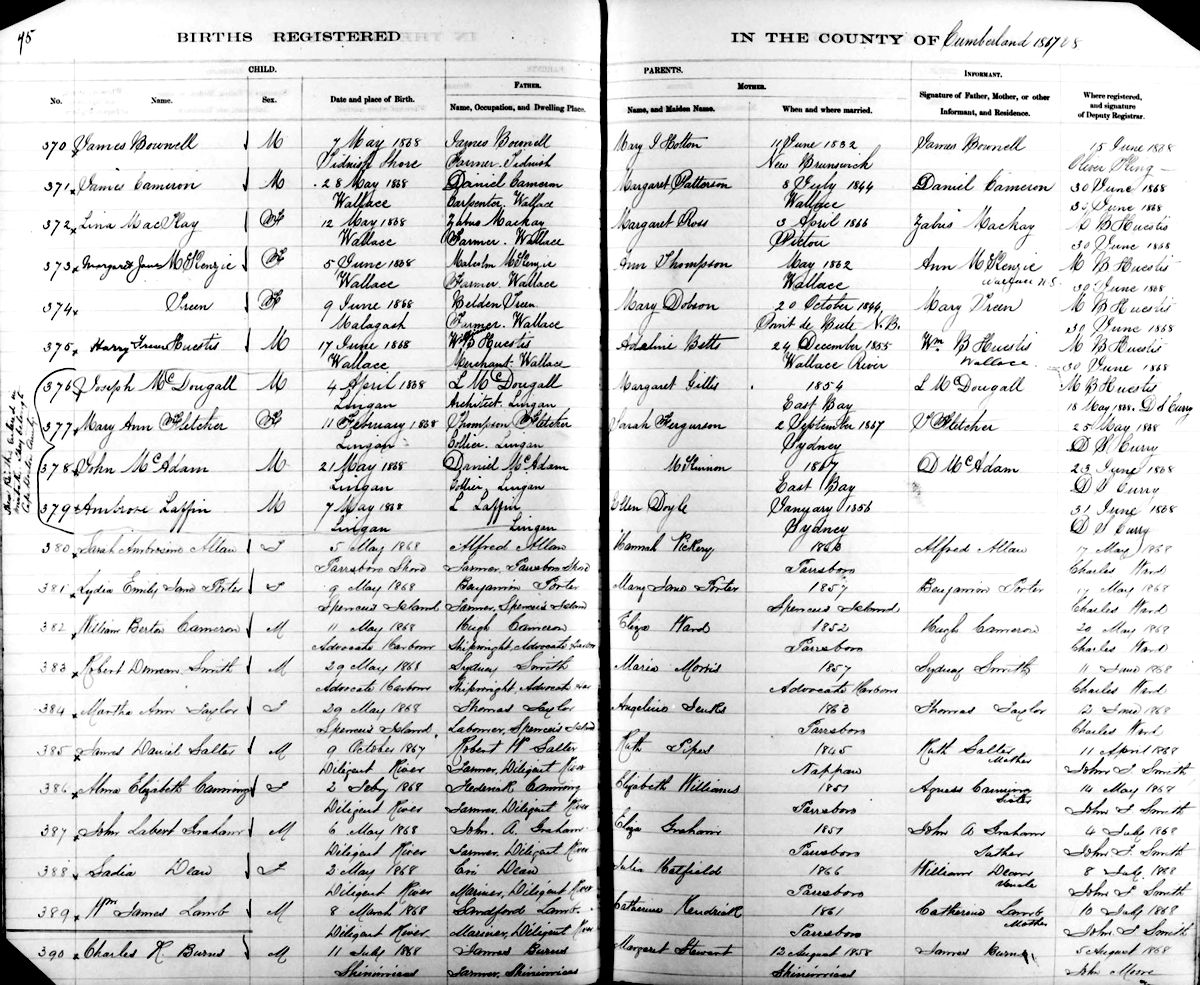 45
BIRTHS REGISTERED IN THE COUNTY OF Cumberland 1867
CHILD. PARENTS.
No. Name. Sex. Date and place of Birth. Father. Name, Occupation, and Dwelling Place. Mother. Name, and Maiden Name. When and where married. Informant. Signature of Father, Mother, or other Informant, and Residence. Where registered, and signature of Deputy Registrar.
370 James Bownell M 7 May 1868 James Bownell Mary J Hotton 11 June 1832 James Bownell 15 June 1868
Tidnish Shore Farmer. Tidnish New Brunswick Oliver King
371 James Cameron M 28 May 1868 Daniel Cameron Margaret Patterson 8 July 1844 Daniel Cameron 30 June 1868
Wallace Carpenter. Wallace Wallace 30 June 1868
372 Lina MacKay F 12 May 1868 Zabus Mackay Margaret Ross 3 April 1866 Zabus Mackay M B Huestis
Wallace Farmer. Wallace Pictou 30 June 1868
373 Margaret Jane McKenzie F 5 June 1868 Malcolm McKenzie Ann Thompson May 1862 Ann McKenzie M B Huestis
Wallace Farmer Wallace Wallace Wallace N.S. 30 June 1868
374 Treen F 9 June 1868 Helden Treen Mary Dobson 20 October 1844 Mary Treen M B Huestis
Malagash Farmer. Wallace Point de Bute N.B. 30 June 1868
375 Harry Huestis M 17 June 1868 Wm B Huestis Adaline Betts 24 December 1855 Wm B Huestis M B Huestis
Wallace Merchant. Wallace Wallace River Wallace 30 June 1868
376 Joseph McDougall M 4 April 1868 L McDougall Margaret Gillis 1854 L McDougall M B Huestis
Lingan Architect. Lingan East Bay 18 May 1868. D S Curry
377 Mary Ann Fletcher F 11 February 1868 Thompson Fletcher Sarah Ferguson 2 September 1867 T Fletcher 25 May 1868
Lingan Collier. Lingan Sydney D S Curry
378 John McAdam M 21 May 1868 Daniel McAdam McKinnon 1867 D McAdam 23 June 1868
Lingan Collier Lingan East Bay D S Curry
379 Ambrose Laffin M 7 May 1868 L Laffin Ellen Doyle January 1856 31 June 1868
Lingan Lingan Sydney D S Curry
380 Sarah Ambrosine Allan F 5 May 1868 Alfred Allan Hannah Vickery 1866 Alfred Allan 17 May 1868
Parrsboro Shore Farmer, Parrsboro Shore Parrsboro Charles Ward
381 Lydia Emily Jane Porter F 9 May 1868 Benjamin Porter Mary Jane Porter 1857 Benjamin Porter 17 May 1868
Spencers Island Farmer, Spencers Island Spencers Island Charles Ward
382 William Berton Cameron M 11 May 1868 Hugh Cameron Eliza Ward 1852 Hugh Cameron 20 May 1868
Advocate Harbour Shipwright, Advocate Parrsboro Charles Ward
383 Robert Duncan Smith M 29 May 1868 Sydney Smith Maria Morris 1857 Sydney Smith 11 June 1868
Advocate Harbour Shipwright, Advocate Advocate Harbour Charles Ward
384 Martha Ann Taylor F 29 May 1868 Thomas Taylor Angelina Jenks 1863 Thomas Taylor 12 June 1868
Spencers Island, Labourer, Spencers Island Parrsboro Charles Ward
385 James Daniel Salter M 9 October 1867 Robert W Salter Ruth Pipes 1845 Ruth Salter 11 April 1868
Diligent River Farmer, Diligent River Nappan Mother John T Smith
386 Alma Elizabeth Canning F 2 Feby 1868 Frederick Canning Elizabeth Williams 1851 Agness Canning 14 May 1868
Diligent River Farmer, Diligent River Parrsboro Sister John T Smith
387 John Labert Graham M 6 May 1868 John. A. Graham Eliza Graham 1857 John A Graham 4 July 1868
Diligent River Farmer, Diligent River Parrsboro Father John T. Smith
388 Sadia Dean F 2 May 1868 Eri Dean Julia Hatfield 1866 William Dean 8 July 1868
Diligent River Mariner, Diligent River Parrsboro Uncle John T Smith
389 Wm James Lamb M 8 March 1868 Sandford Lamb Catherine Kendrick 1861 Catherine Lamb 10 July 1868
Diligent River Mariner, Diligent River Parrsboro Mother John T Smith
390 Charles K Burns M 11 July 1868 James Burns Margaret Stewart 12 August 1858 James Burns 5 August 1868
Shinimicas Farmer, Shinimicas Shinimicas John Moore